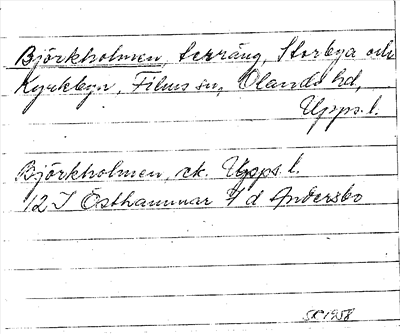 Björkholmen, terräng, Storbyn och
Kyrkbyn, Films sn, Olands hd,
Upps. l.
Björkholmen, ek. Upps. l.
12 I Östhammar 7 d Andersbo
SK 1958